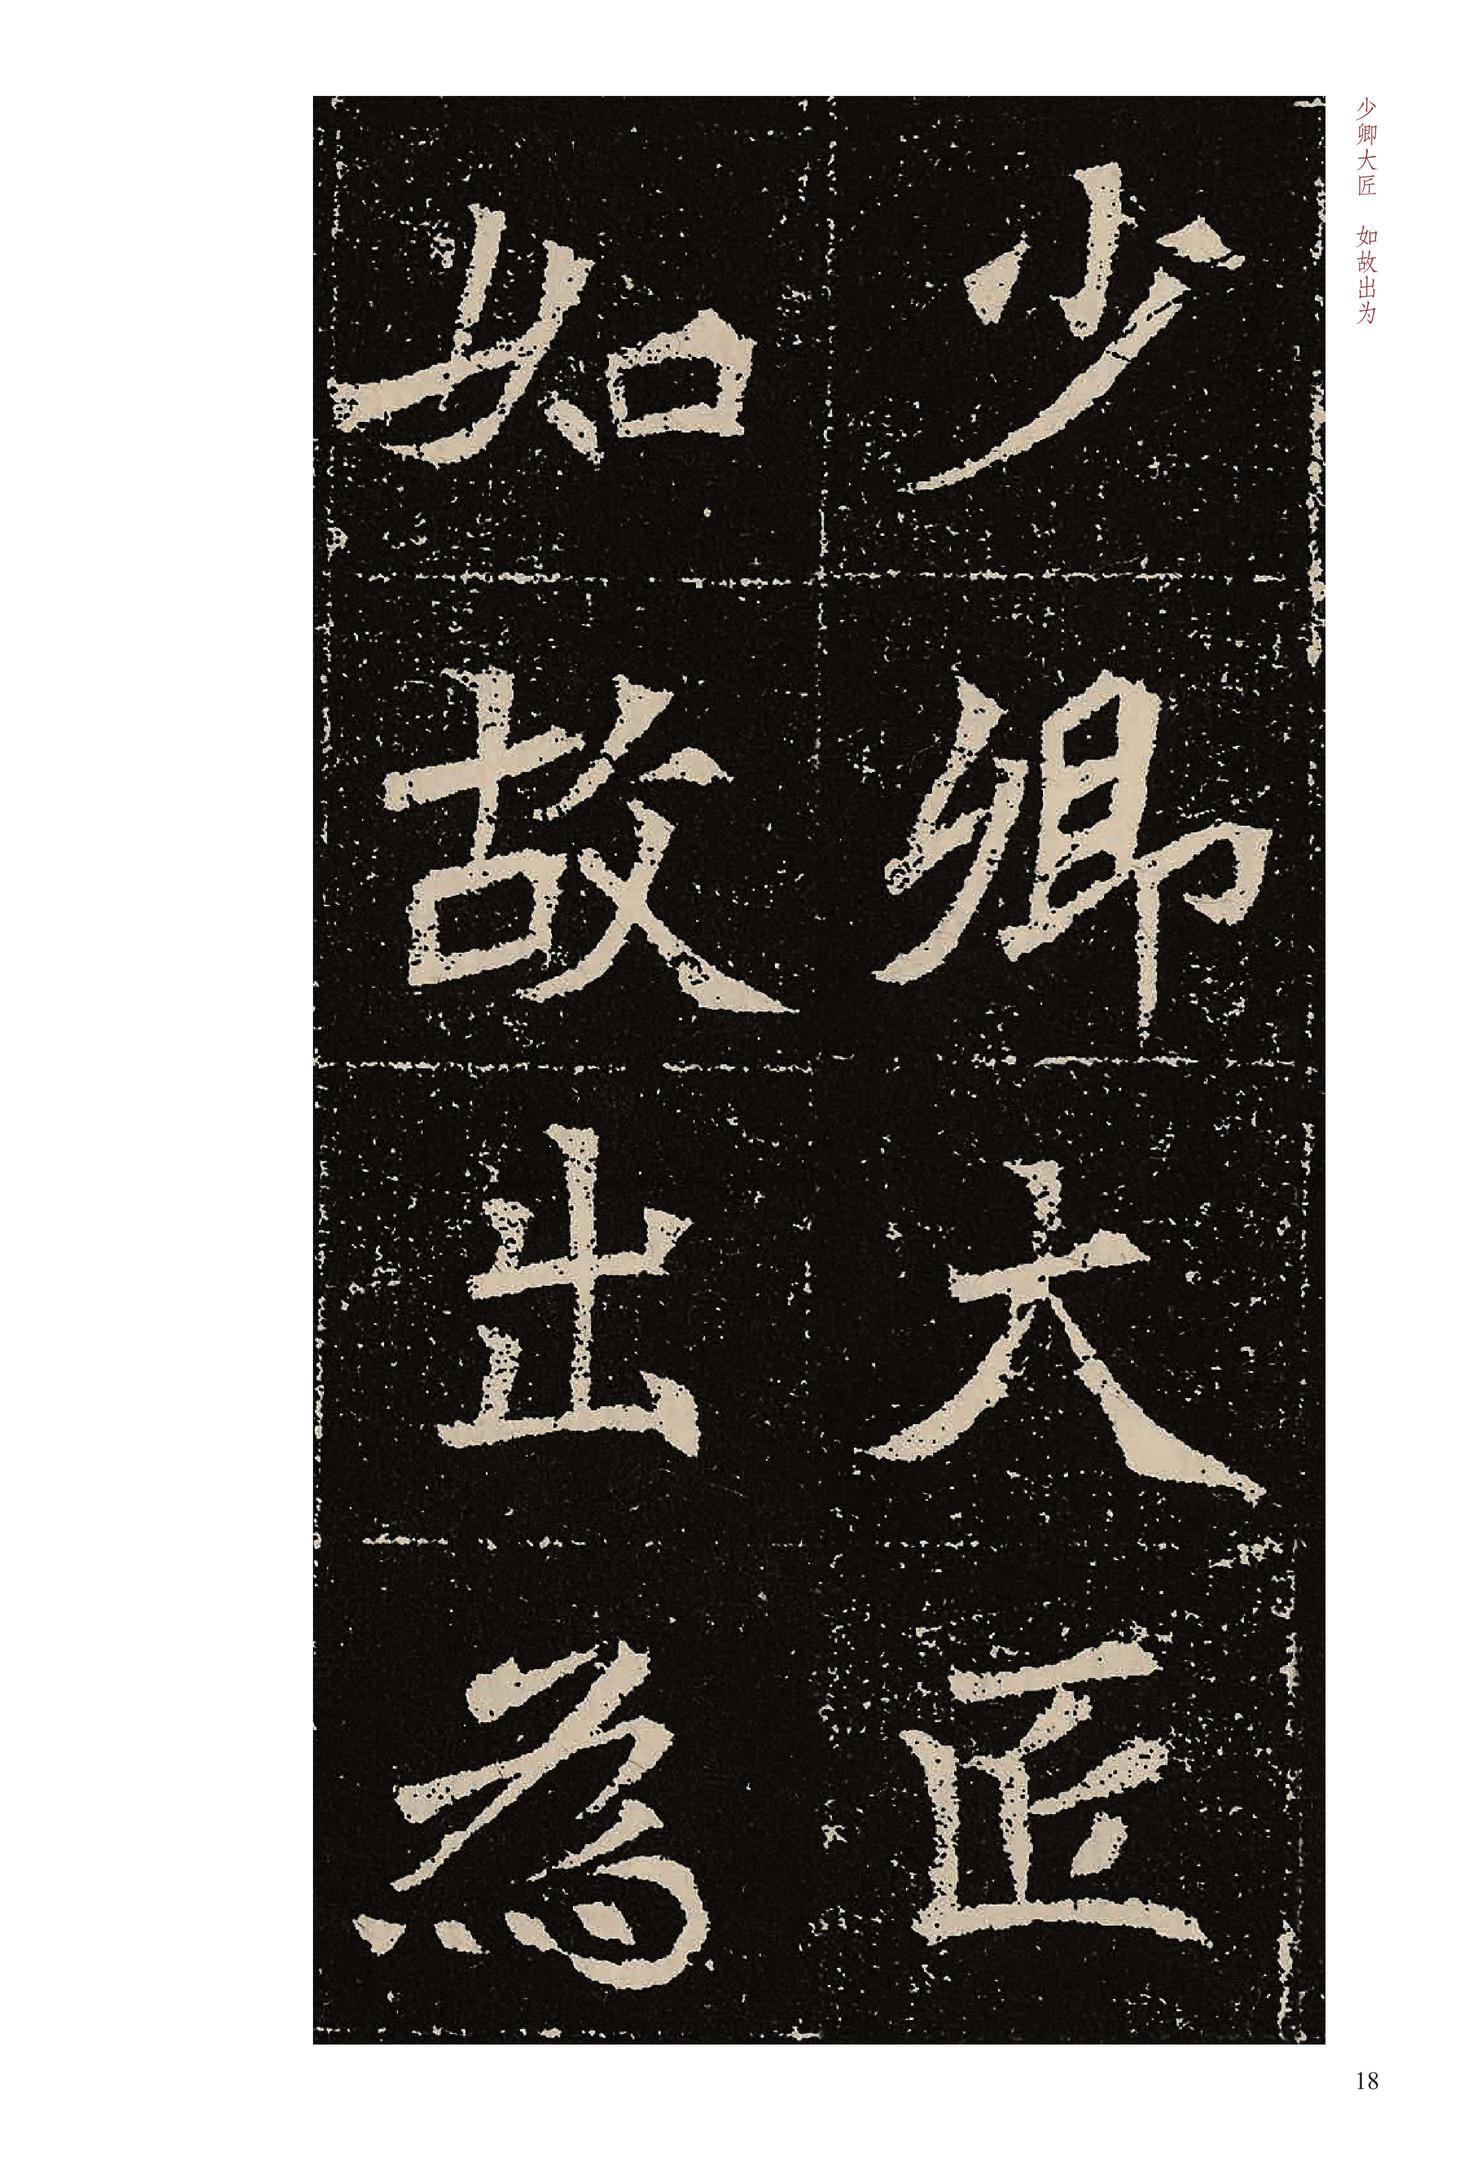 少卿大匠
如故出為
少卿大匠　如故出为
18